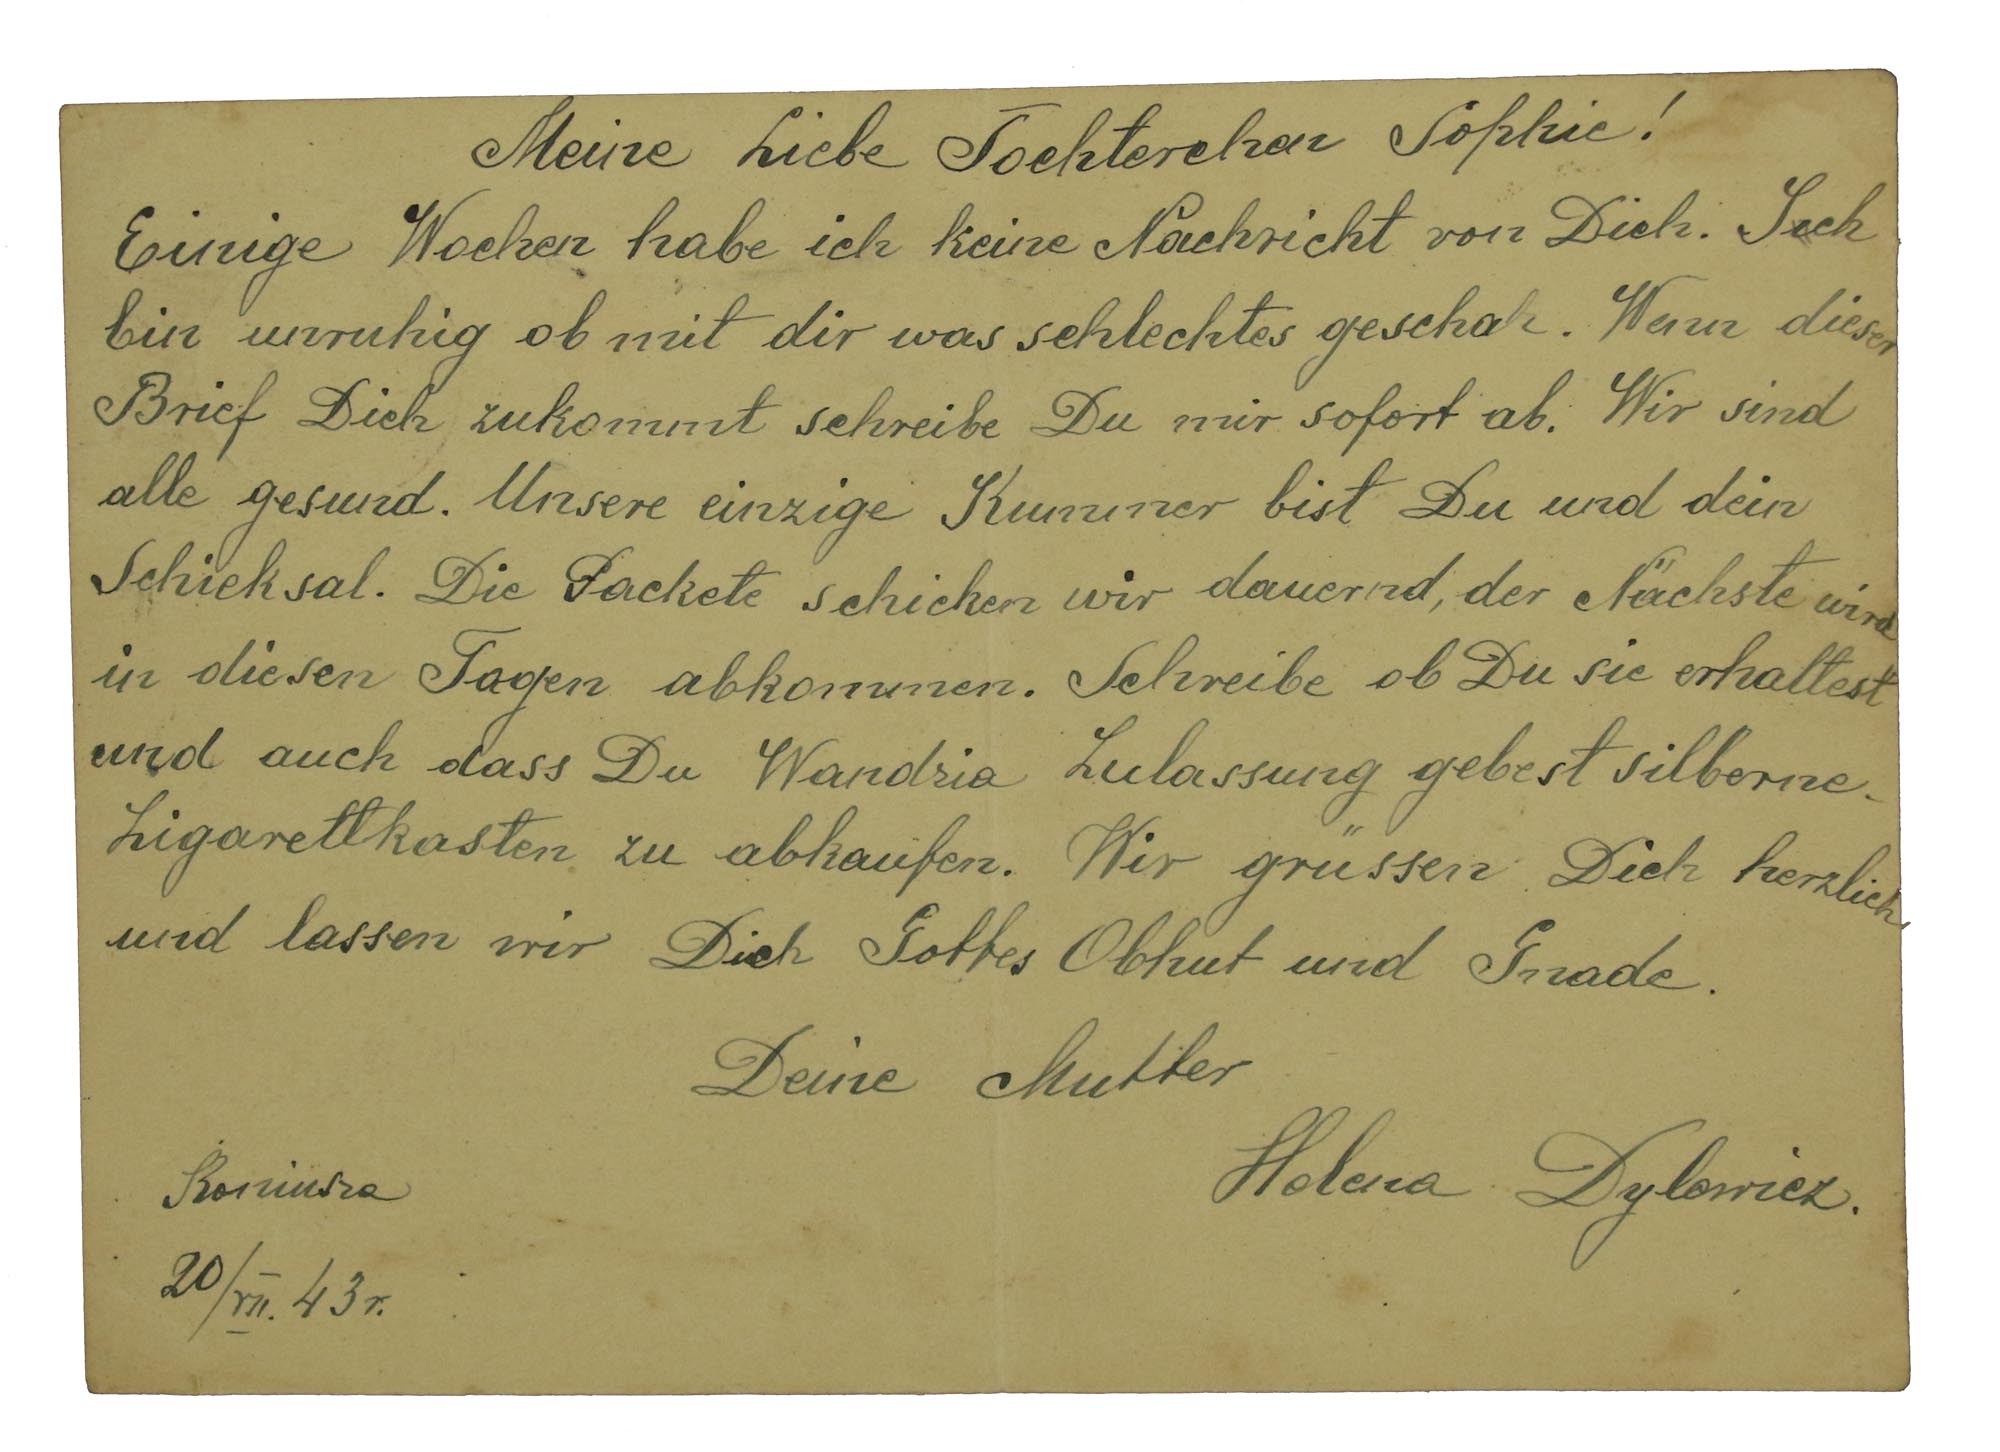 Meine Liebe Tochterchen Sophie!
Einige Wochen habe ich keine Nachricht von Dich. Ich
bin unruhig ob mit dir was schlechtes geschah. Wenn dieser
Brief Dich zukommt schreibe Du mir sofort ab. Wir sind
alle gesund. Unsere einzige Kummer bist Du und dein
Schicksal. Die Packete schicken wir dauernd, der Nächste wird
in diesen Tagen abkommen. Schreibe ob Du sie erhaltest
und auch dass Du Wandzia Zulassung gebest silberne-
Zigarettkasten zu abkaufen. Wir grüssen Dich herzlich
und lassen wir Dich Gottes Obhut und Gnade.
Deine Mutter
Helena Dylewicz.
Koniusza
20/VII. 43 r.